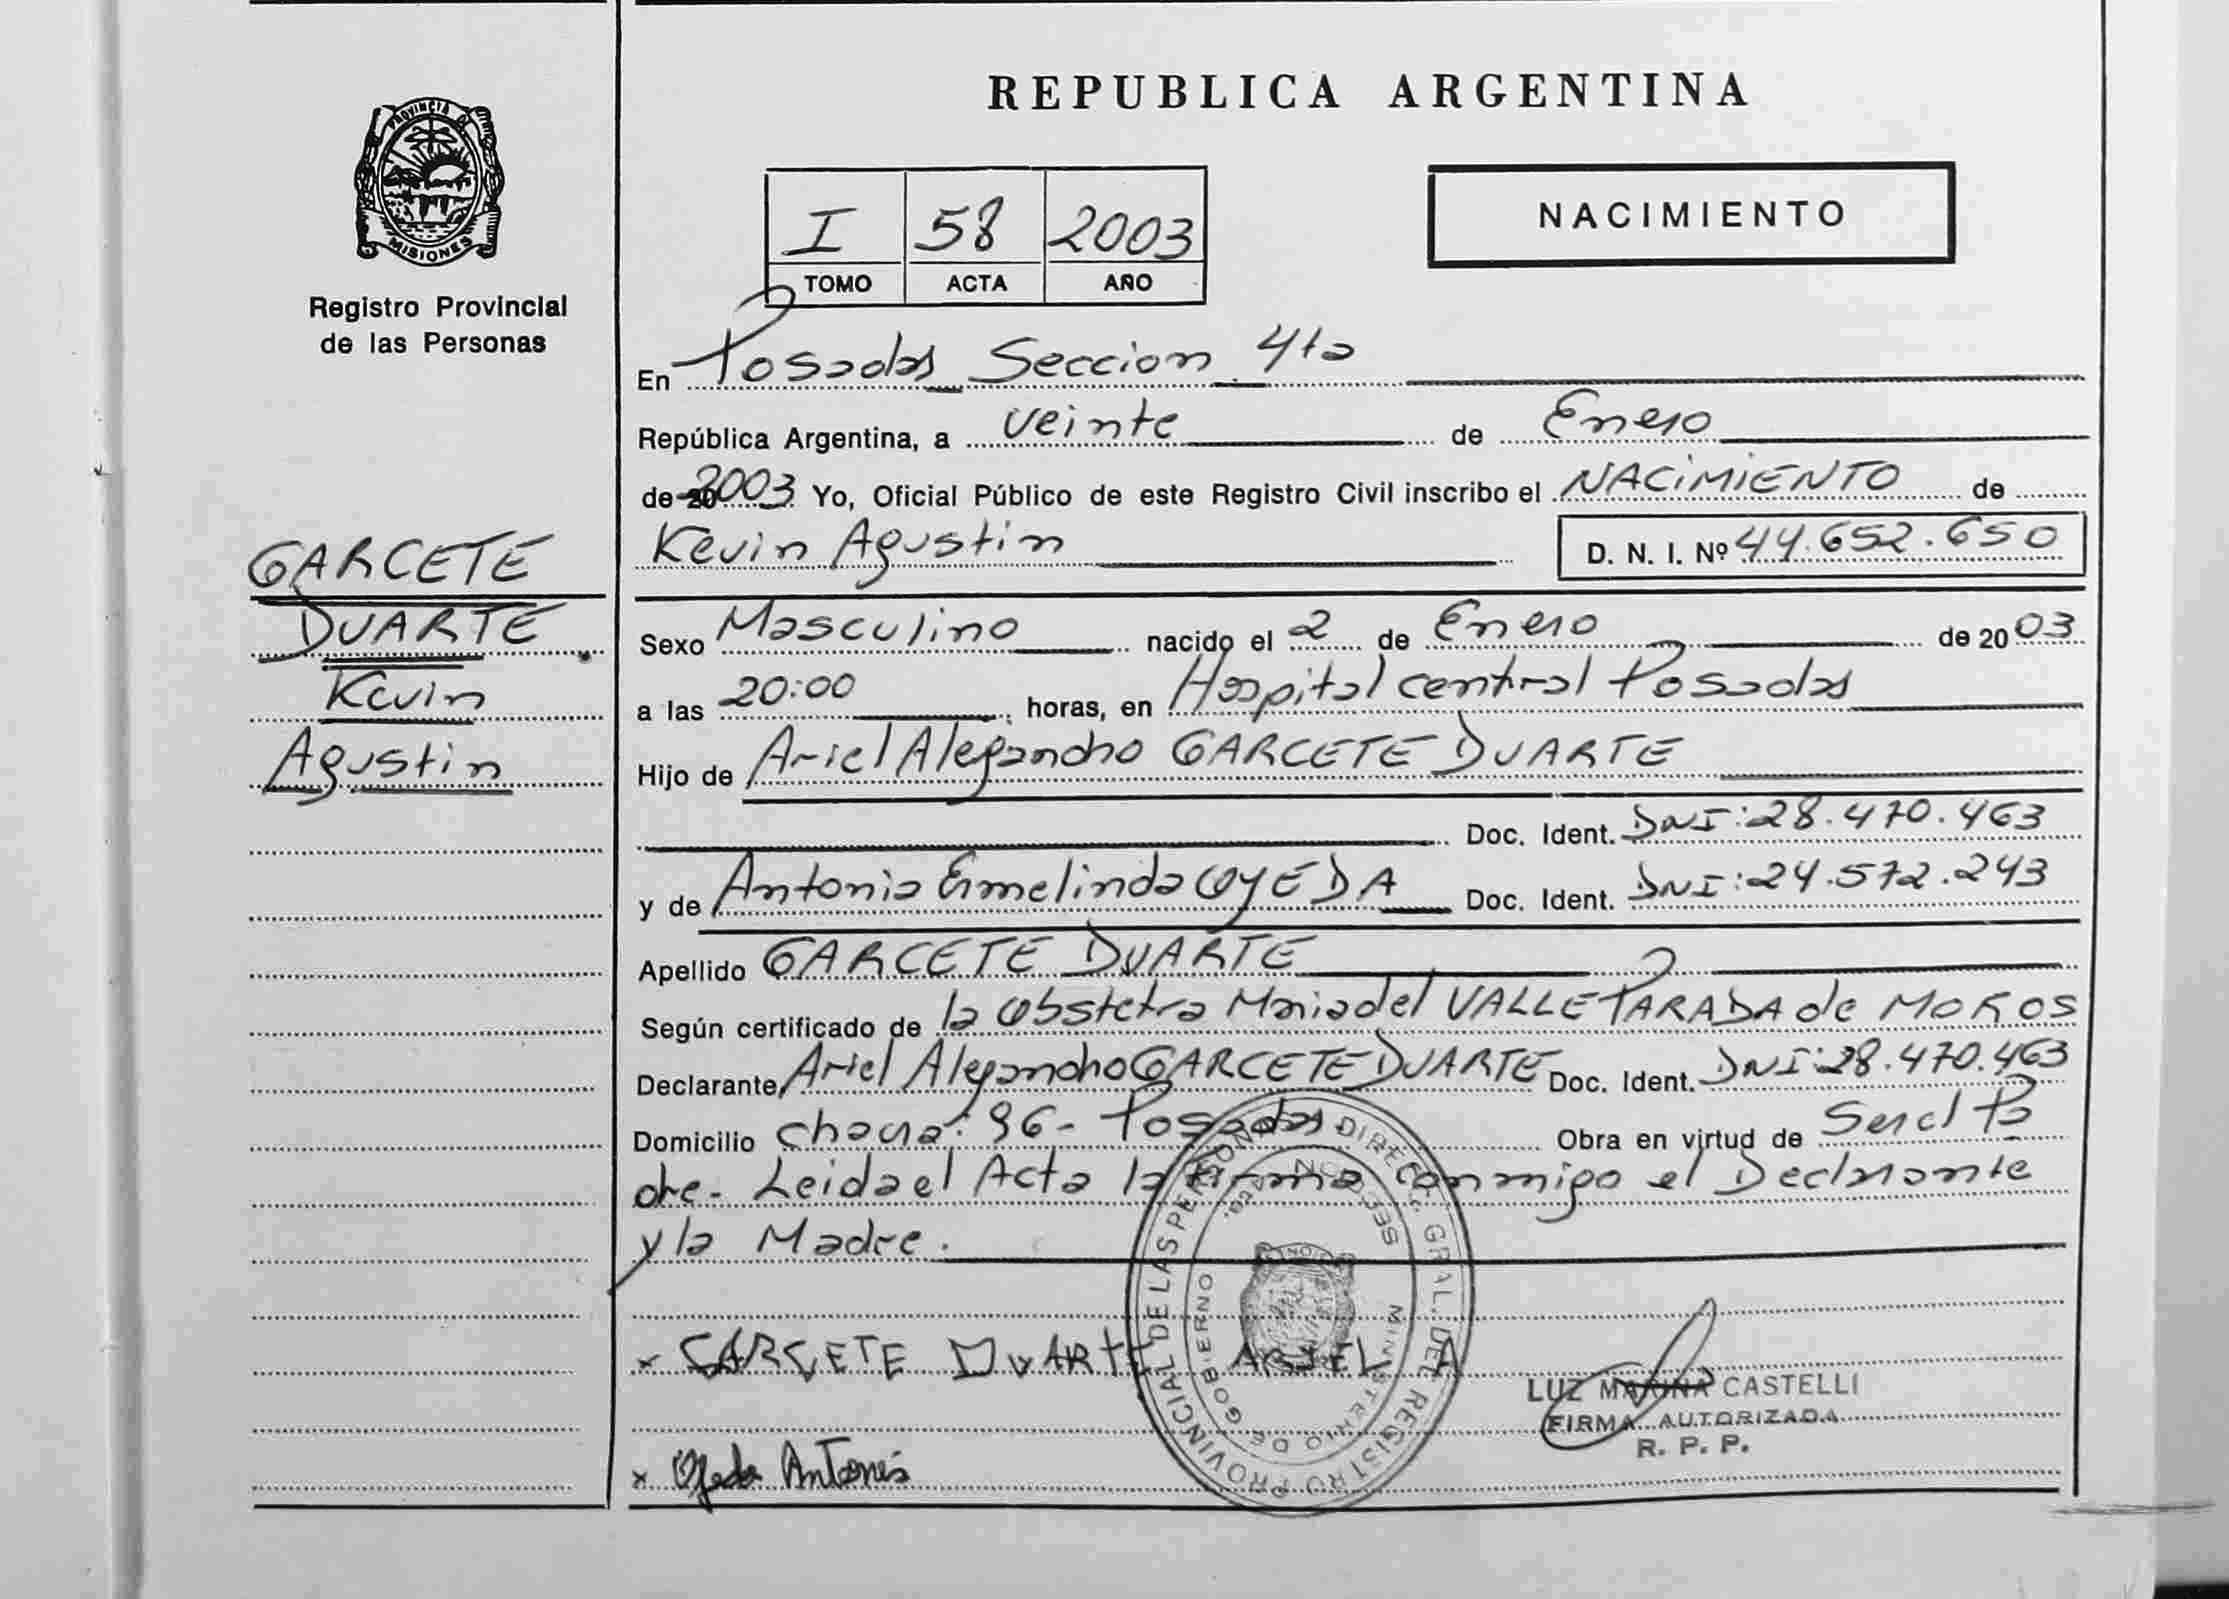 REPUBLICA ARGENTINA
PROVINCIA DE
MISIONES
Registro Provincial
de las Personas
I 58 2003
TOMO ACTA AÑO
NACIMIENTO
En Posadas Seccion 4ta
República Argentina, a veinte de Enero
de 20 2003 Yo, Oficial Público de este Registro Civil inscribo el NACIMIENTO de
Kevin Agustin D. N. I. Nº 44.652.650
GARCETE
DUARTE
Kevin
Agustin
Sexo Masculino nacido el 2 de Enero de 2003
a las 20:00 horas, en Hospital central Posadas
Hijo de Ariel Alejandro GARCETE DUARTE
Doc. Ident. DNI: 28.470.463
y de Antonia Ermelinda OJEDA Doc. Ident. DNI: 24.572.243
Apellido GARCETE DUARTE
Según certificado de la Obstetra Maria del VALLE PARADA de MOROS
Declarante Ariel Alejandro GARCETE DUARTE Doc. Ident. DNI: 28.470.463
Domicilio chacra: 96- Posadas. Obra en virtud de Ser el Pa
dre- Leida el Acta la firma conmigo el Declarante
y la Madre.
x GARCETE DUARTE ARIEL A
x Ojeda Antonia
DIRECC. GRAL. DEL REGISTRO PROVINCIAL DE LAS PERSONAS
MINISTERIO DE GOBIERNO
LUZ MARINA CASTELLI
FIRMA AUTORIZADA
R. P. P.